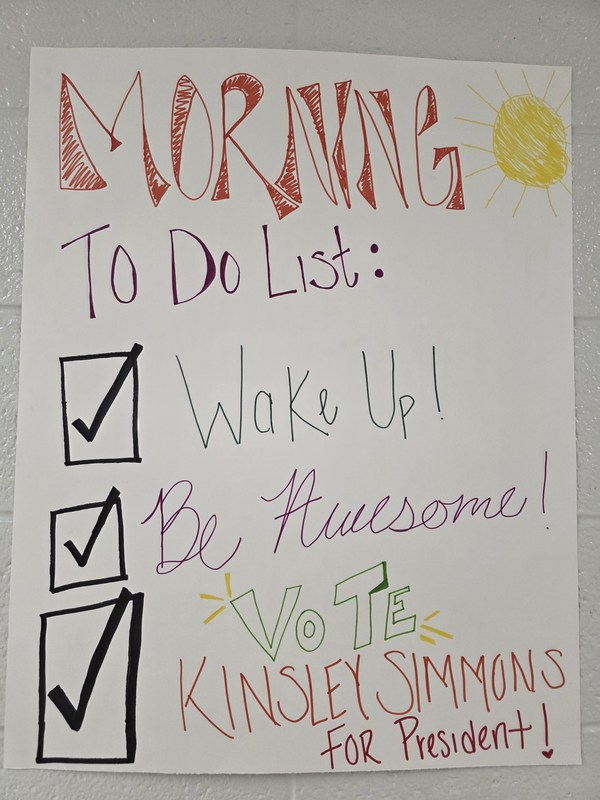 MORNING
To Do List:
Wake Up!
Be Awesome!
VOTE
KINSLEY SIMMONS
FOR President!